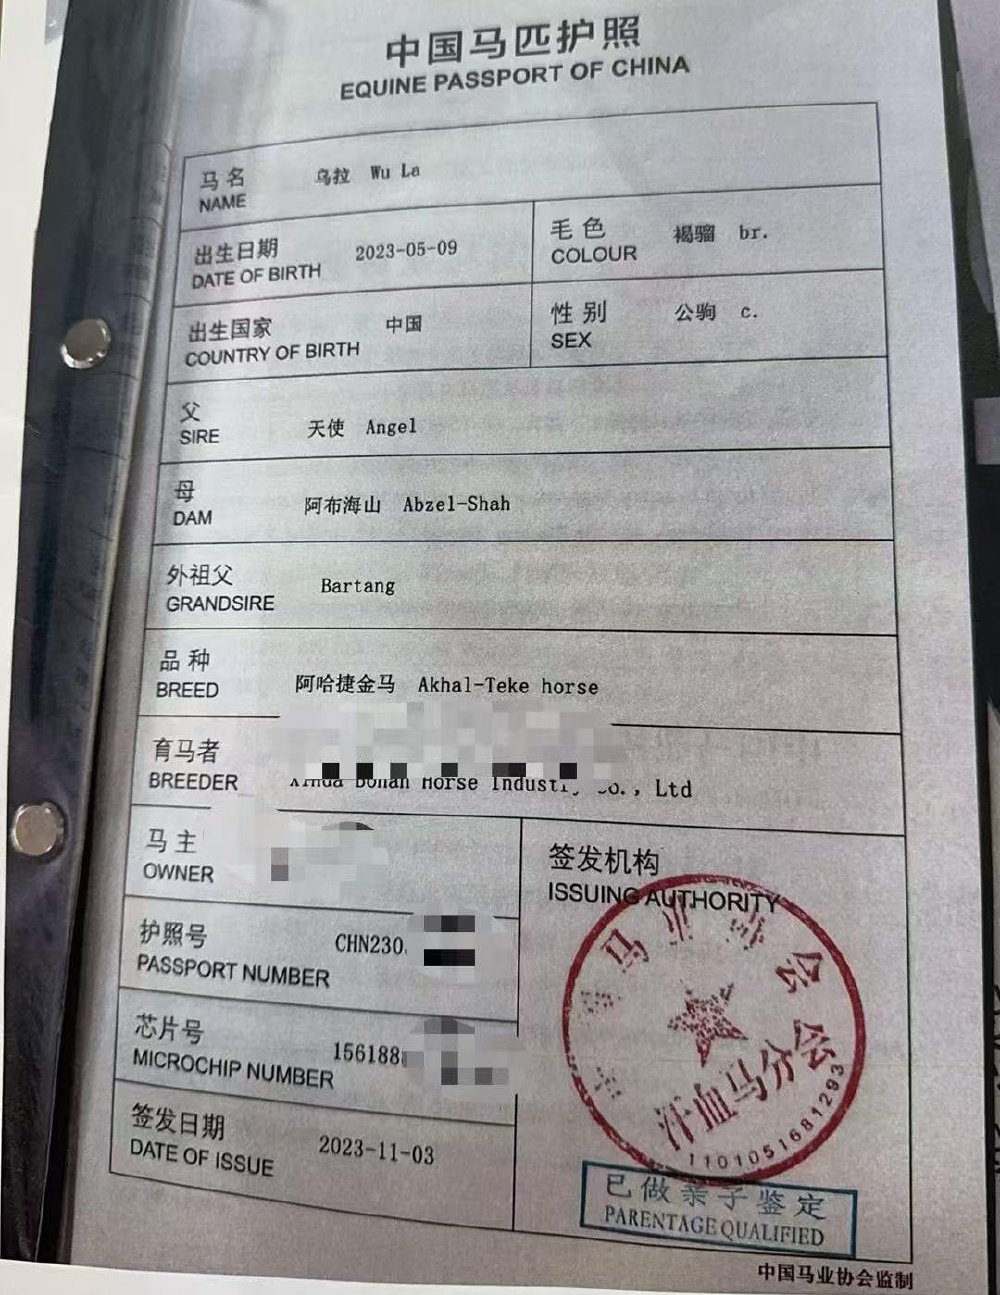 中国马匹护照
EQUINE PASSPORT OF CHINA
马名 乌拉 Wu La
NAME
出生日期 2023-05-09
DATE OF BIRTH
毛色 褐骝 br.
COLOUR
出生国家 中国
COUNTRY OF BIRTH
性别 公驹 c.
SEX
父 天使 Angel
SIRE
母 阿布海山 Abzel-Shah
DAM
外祖父 Bartang
GRANDSIRE
品种 阿哈捷金马 Akhal-Teke horse
BREED
育马者
BREEDER Horse Co., Ltd
马主
OWNER
护照号 CHN230
PASSPORT NUMBER
芯片号 156188
MICROCHIP NUMBER
签发日期 2023-11-03
DATE OF ISSUE
签发机构
ISSUING AUTHORITY
马业协会
汗血马分会
1101051681293
已做亲子鉴定
PARENTAGE QUALIFIED
中国马业协会监制